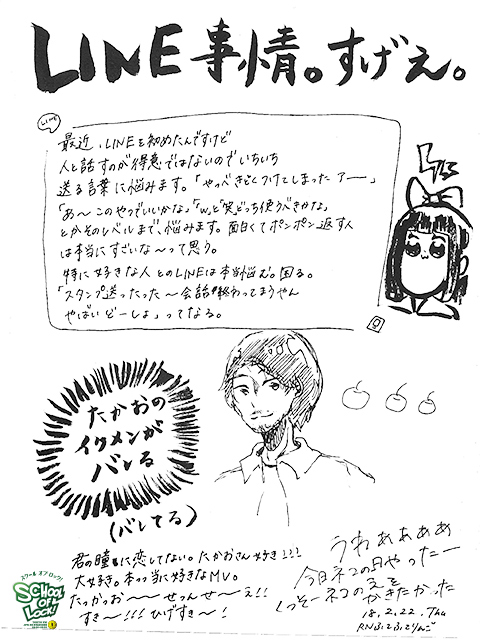 LINE事情。すげえ。
LINE
最近、LINEを初めたんですけど
人と話すのが得意ではないのでいちいち
送る言葉に悩みます。「やっべきどくつけてしまったアー」
「あ〜このやつでいいかな」「「w」と「笑」どっち使うべきかな」
とかそのレベルまで、悩みます。面白くてポンポン返す人
は本当にすごいな〜って思う。
特に好きな人とのLINEは本当悩む。困る。
「スタンプ送ったった〜会話終わってまうやん
やばいどーしょ」ってなる。
たかおの
イケメンが
バレる
(バレてる)
君の瞳に恋してない。たかおさん好き!!!
大好き。本っ当に好きなMV。
たっかっお〜〜せっんせ〜え!!
すき〜!!!ひげすき〜!
うわぁぁぁぁ
今日ネコの日やったー
くっそーネコのえを
かきたかった
18.2.22.Thu
RNふじふじりんご
スクール オブ ロック!
SCHOOL
OF
LOCK!